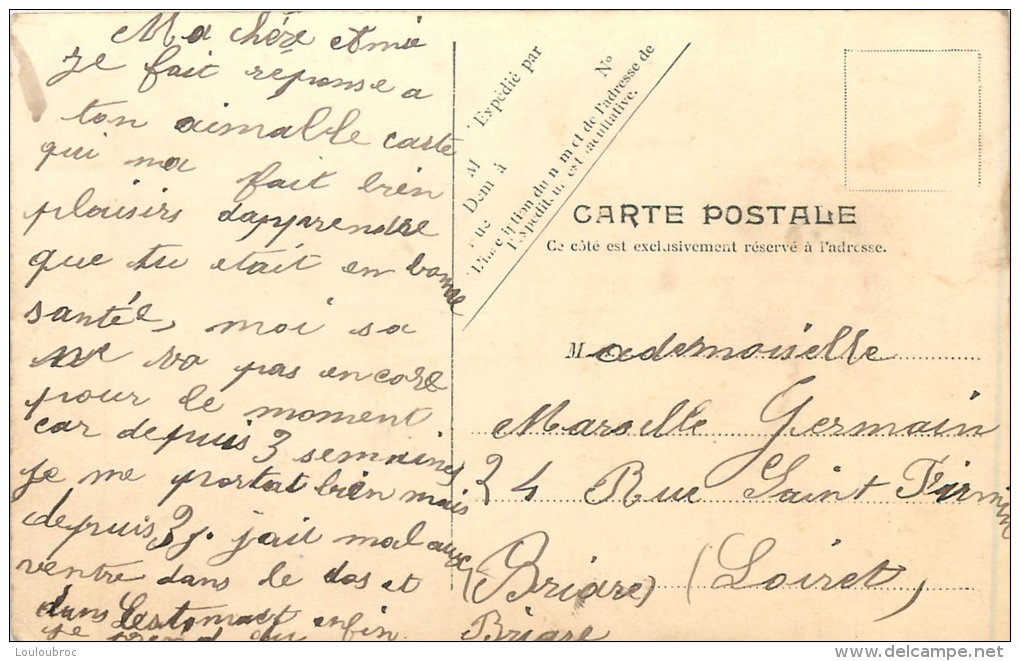 Ma chére Amie
Je fait réponse a
ton aimablle carte
qui ma fait bien
plaisirs dapprendre
que tu etait en bonne
santée, moi sa
ne va pas encore
pour le moment
car depuis 3 semaines
je me portat bien mais
depuis 3 j. jait mal aux
ventre dans le dos et
dans lestomact enfin
je
Expédié par
M
Dem à
rue
No
L'inscription du nom et de l'adresse de
l'expéditeur est facultative.
CARTE POSTALE
Ce côté est exclusivement réservé à l'adresse.
Mademoiselle
Marselle Germain
24 Rue Saint Firmin
(Briare) (Loiret,
Briare
© Louloubroc
www.delcampe.net